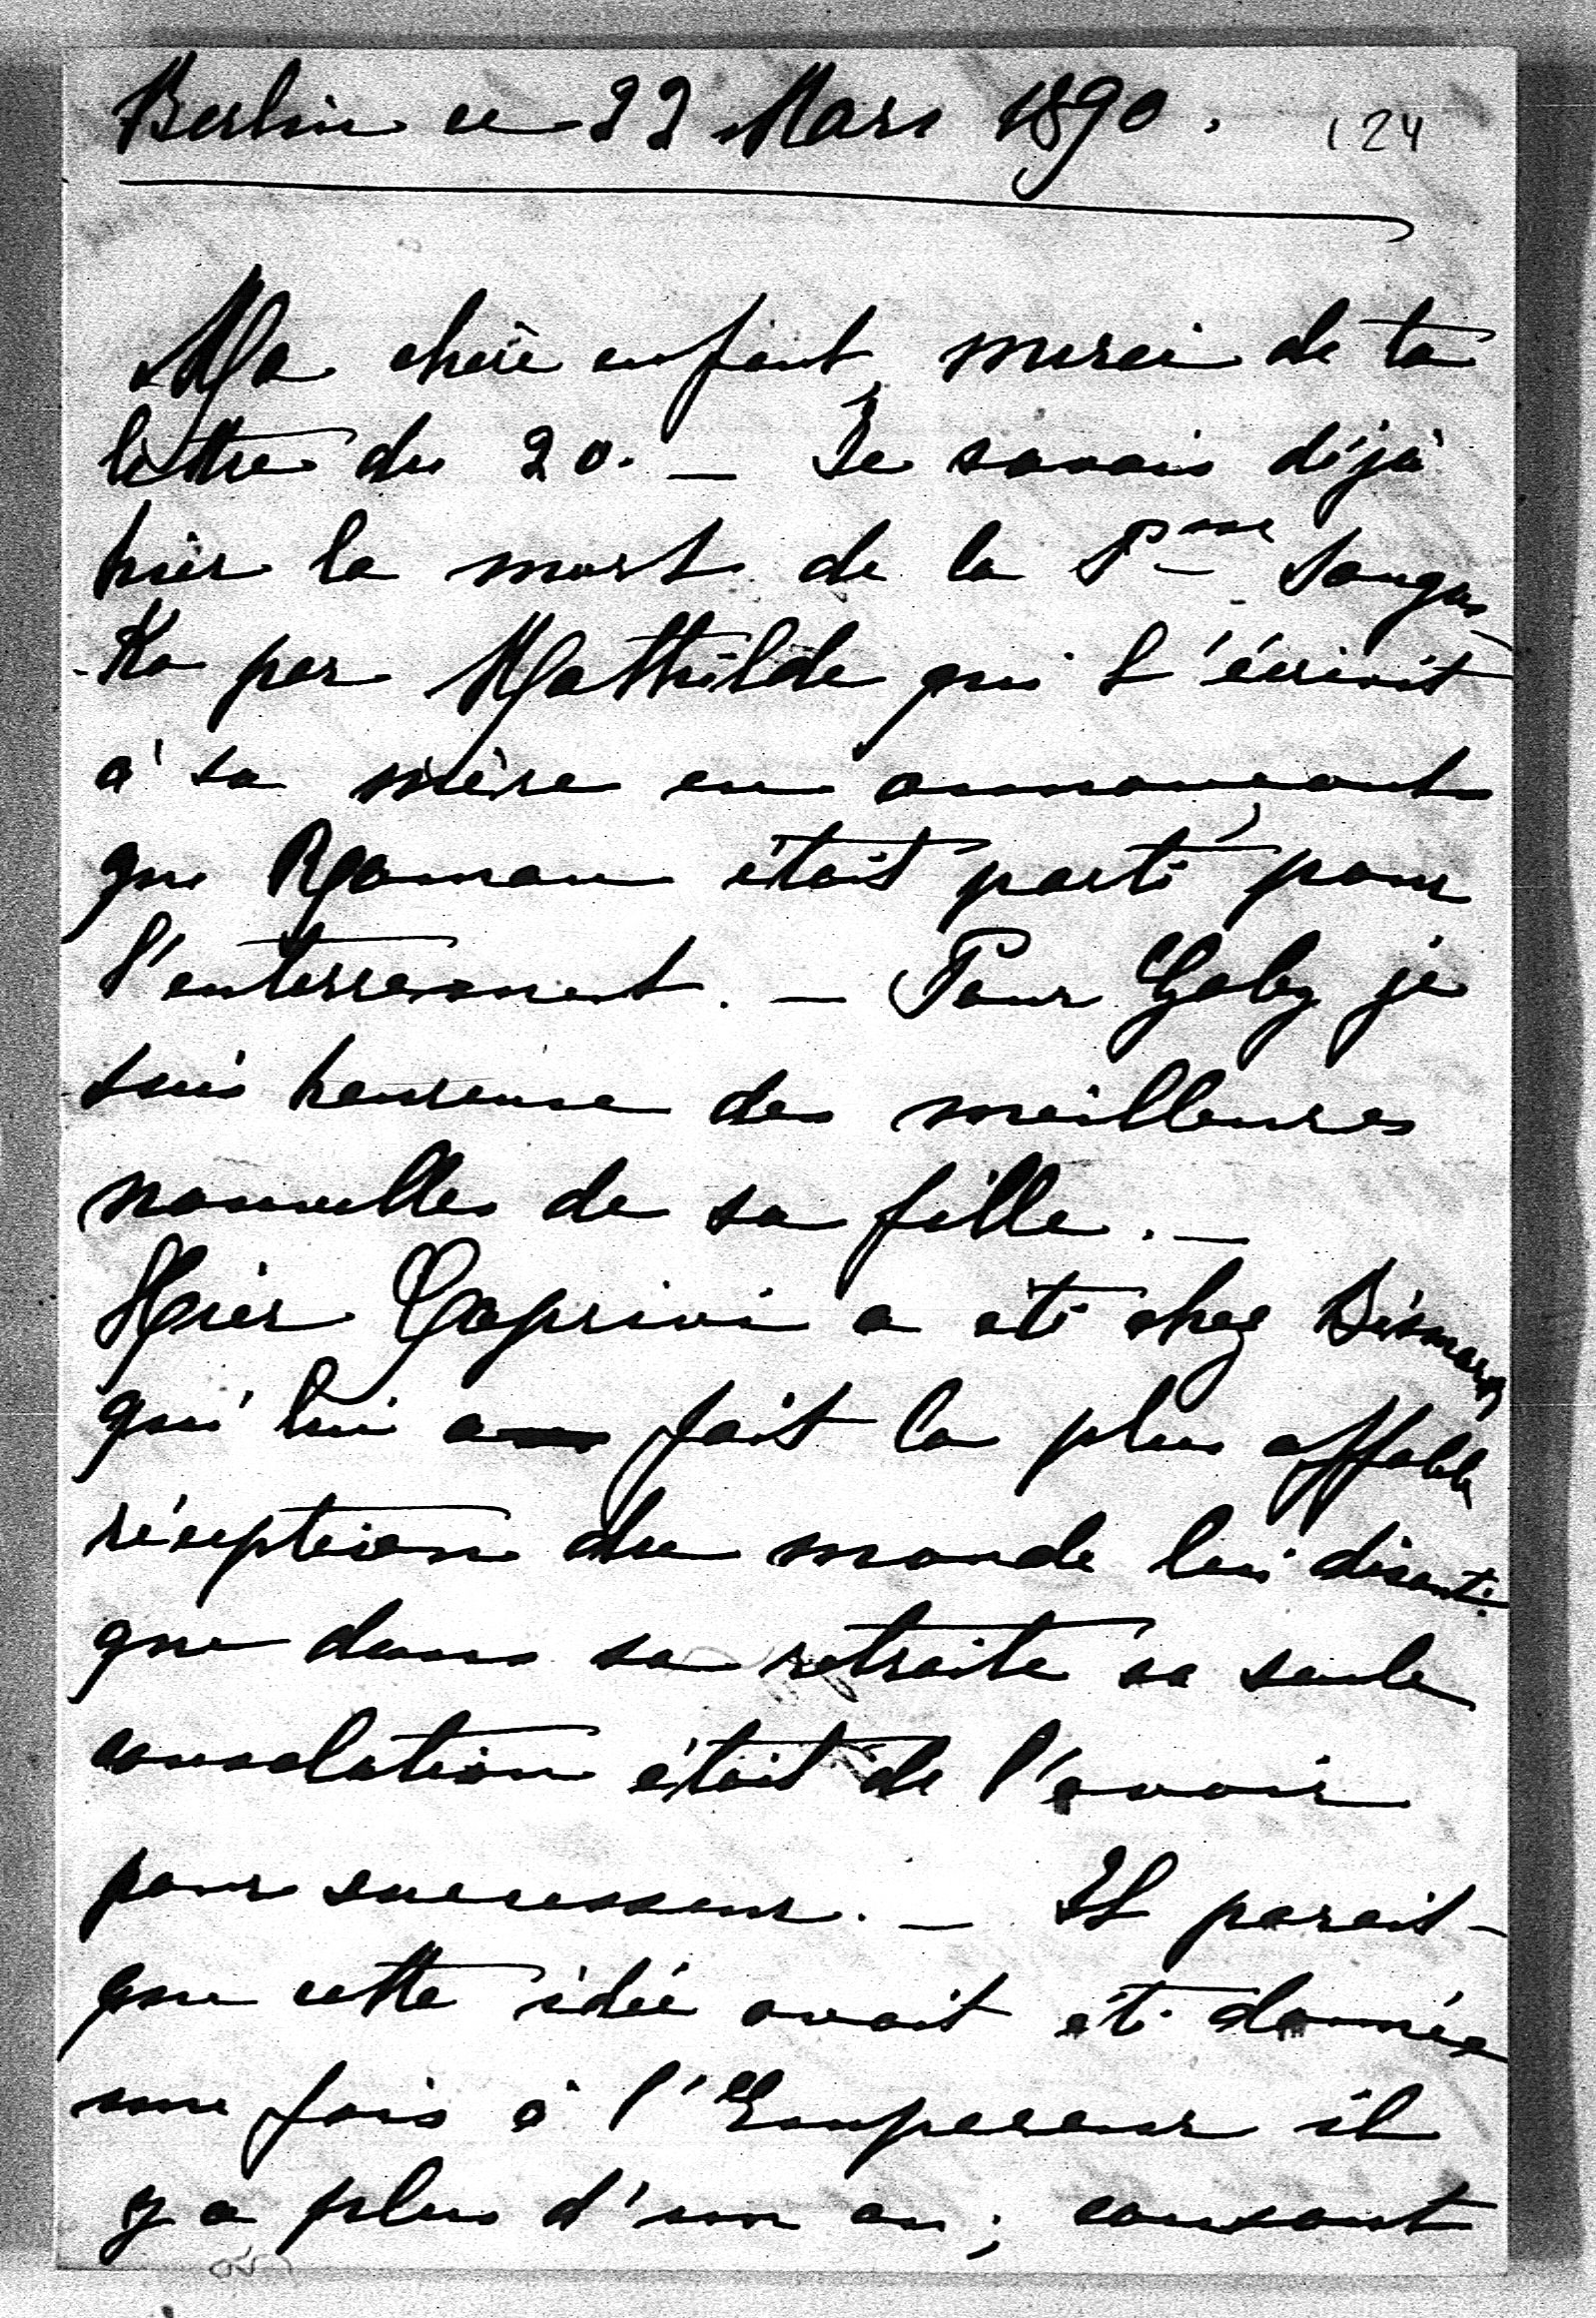 Berlin ce 22 Mars 1890. 124
Ma chère enfant, merci de ta
lettre du 20. — Je savais déjà
hier la mort de la Psse Sangus-
-Ko par Mathilde qui l'écrivit
à sa mère en annonçant
que Roman était parti pour
l'enterrement. — Pour Gaby je
suis heureuse des meilleures
nouvelles de sa fille. —
Hier Caprivi a été chez Bismarck
qui lui a fait la plus affable
réception du monde lui disant:
que dans sa retraite sa seule
consolation était de l'avoir
pour successeur. — Il parait-
que cette idée avait été donnée
une fois à l'Empereur il
y a plus d'un an; causant